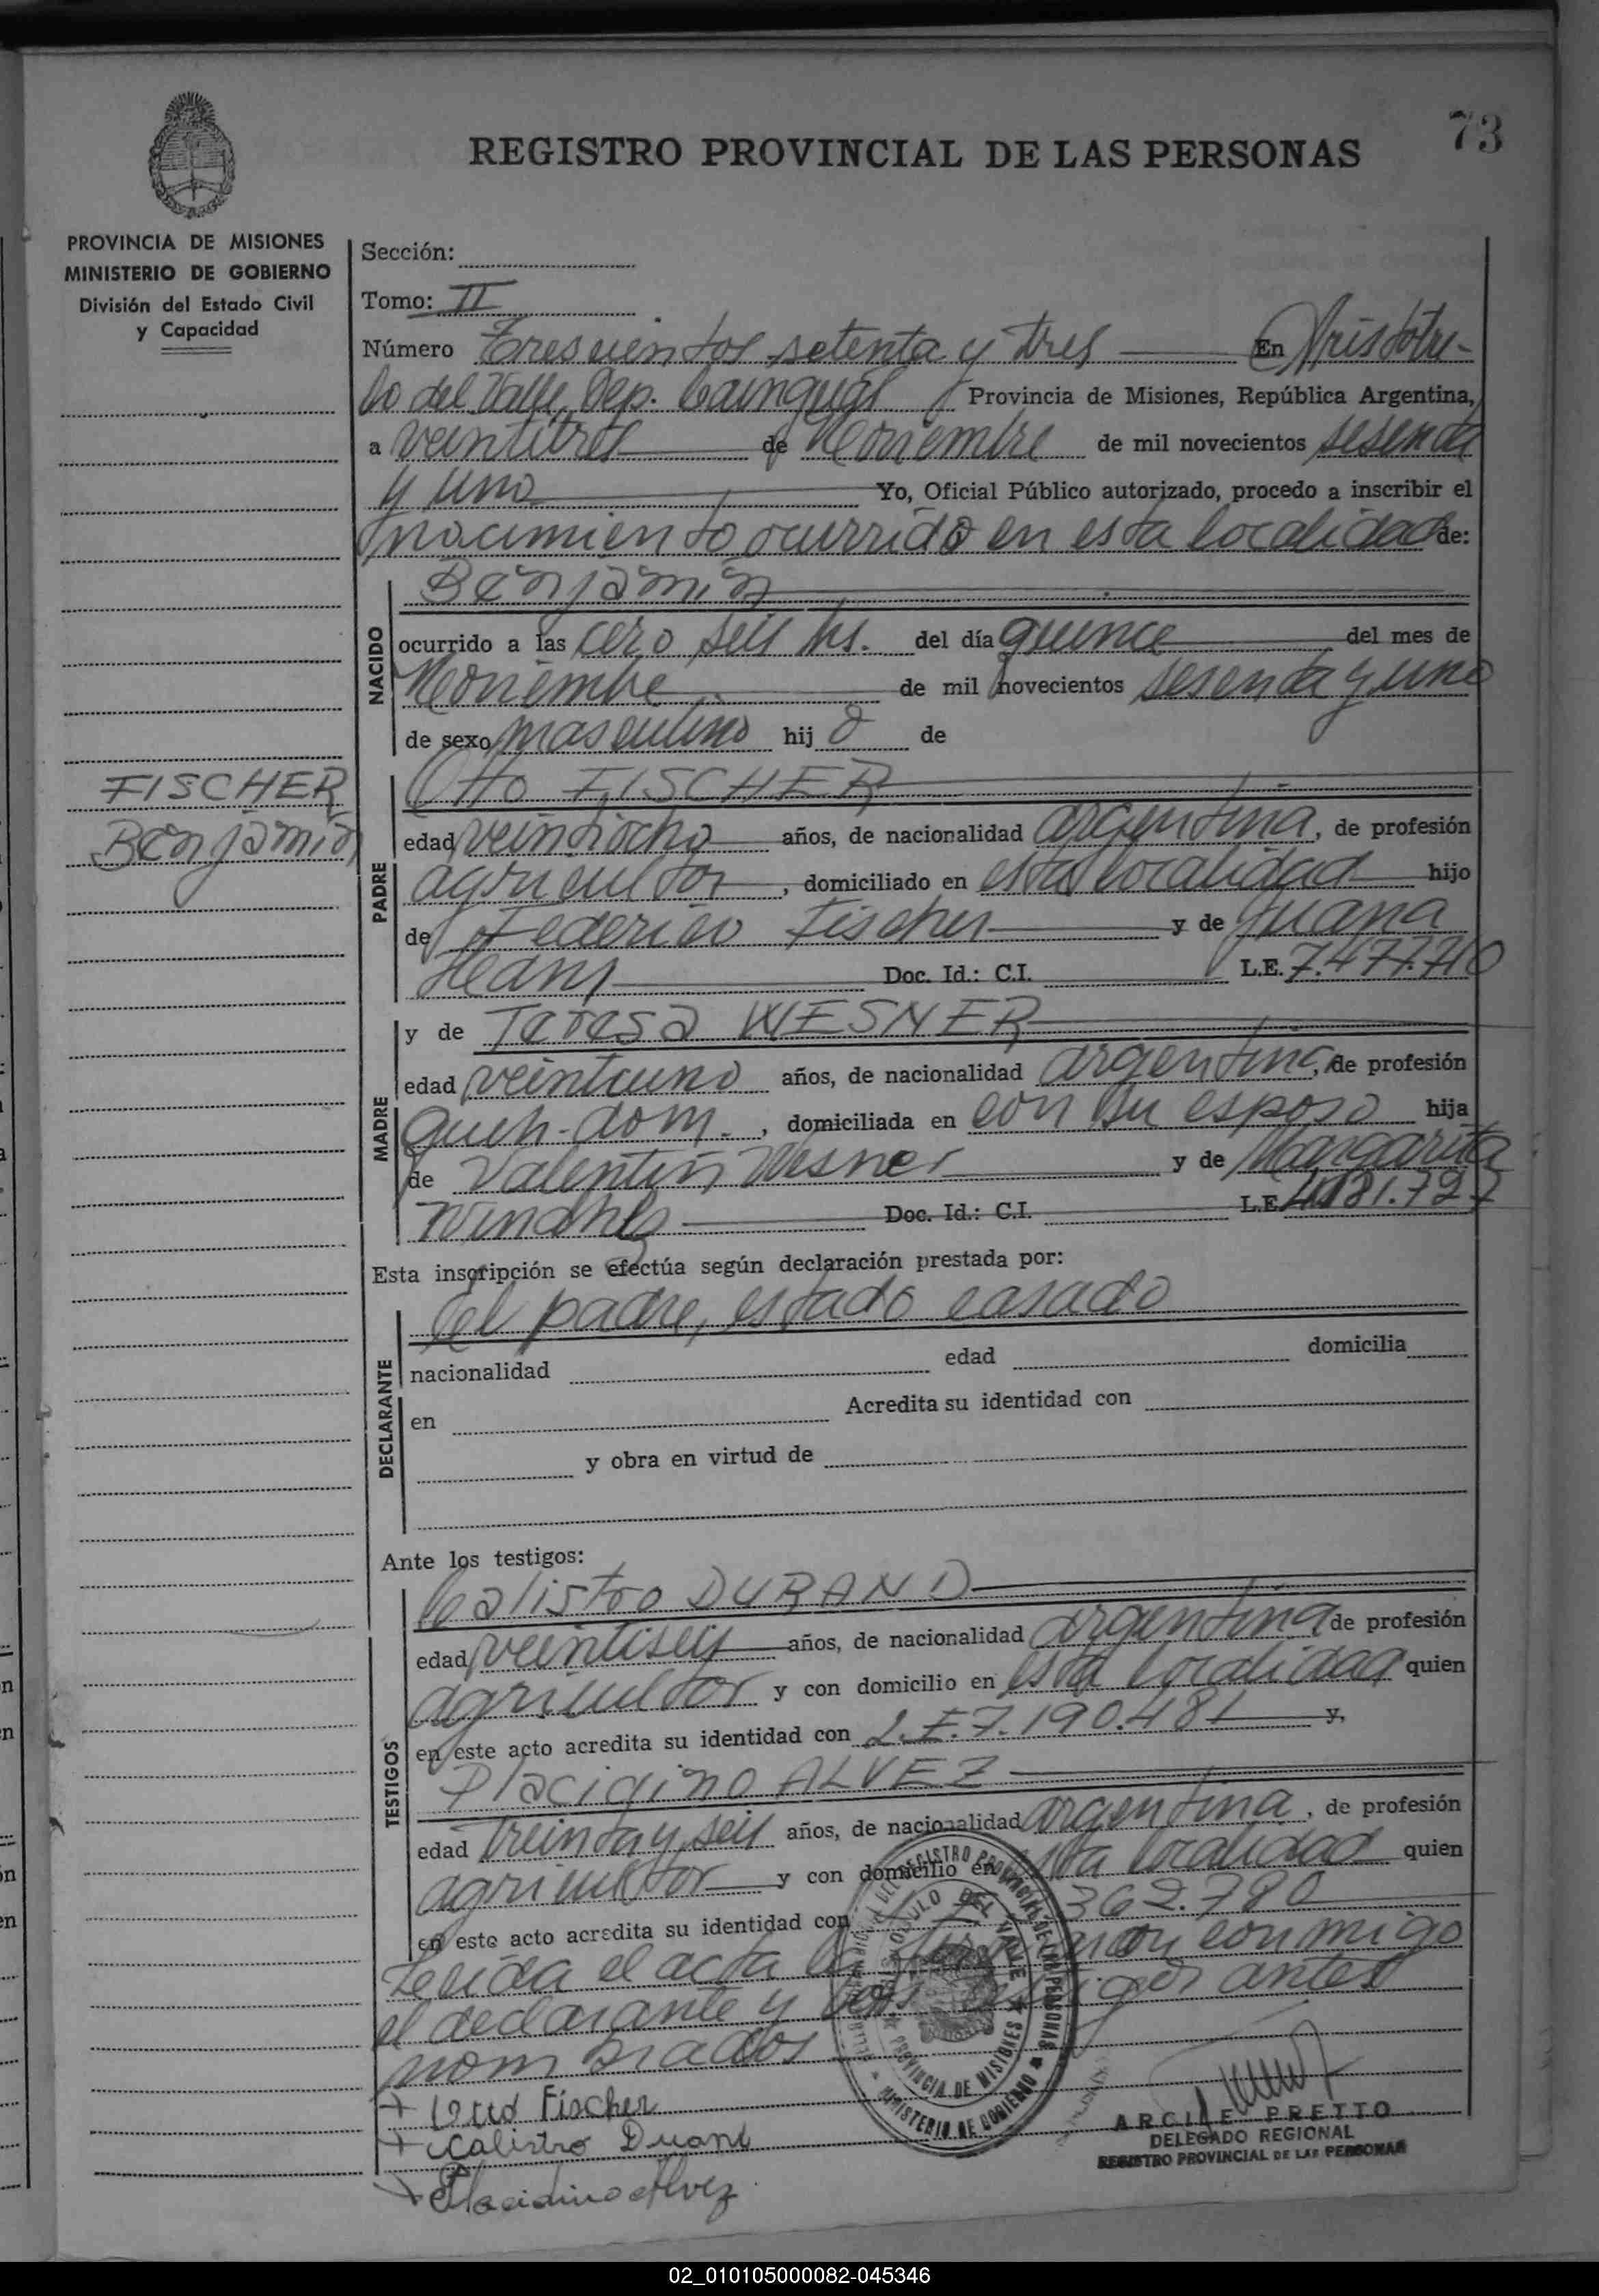 73
REGISTRO PROVINCIAL DE LAS PERSONAS
PROVINCIA DE MISIONES
MINISTERIO DE GOBIERNO
División del Estado Civil
y Capacidad
Sección:
Tomo: II
Número Trescientos setenta y tres En Aristóbu-
lo del Valle, Dep. Cainguas Provincia de Misiones, República Argentina,
a veintitres de Noviembre de mil novecientos sesenta
y uno Yo, Oficial Público autorizado, procedo a inscribir el
nacimiento ocurrido en esta localidad de:
NACIDO
Benjamin
ocurrido a las cero seis hs. del día quince del mes de
Noviembre de mil novecientos sesenta y uno
de sexo masculino hij o de
FISCHER
Benjamin
PADRE
Otto FISCHER
edad veintiocho años, de nacionalidad argentina, de profesión
agricultor, domiciliado en esta localidad hijo
de Federico Fischer y de Juana
Doc. Id.: C.I. L.E. 7.477.710
MADRE
y de Teresa WESNER
edad veintiuno años, de nacionalidad argentina, de profesión
queh. dom., domiciliada en con su esposo hija
de Valentin Wesner y de Margarita
Doc. Id.: C.I. L.E. 4.181.727
Esta inscripción se efectúa según declaración prestada por:
DECLARANTE
el padre, estado casado
nacionalidad edad domicilia
en Acredita su identidad con
y obra en virtud de
Ante los testigos:
TESTIGOS
Calistro DURAND
edad veintiseis años, de nacionalidad argentina de profesión
agricultor y con domicilio en esta localidad quien
en este acto acredita su identidad con L.E. 7.190.481 y,
Placidino ALVEZ
edad treinta y seis años, de nacionalidad argentina, de profesión
agricultor y con domicilio en esta localidad quien
en este acto acredita su identidad con 362.780
Leida el acta la firmaron conmigo
el declarante y los testigos antes
nombrados
+ Otto Fischer
+ Calistro Durand
+ Placidino Alvez
REGISTRO PROVINCIAL DE LAS PERSONAS
ARISTOBULO DEL VALLE
PROVINCIA DE MISIONES
MINISTERIO DE GOBIERNO
ARCILE PRETTO
DELEGADO REGIONAL
REGISTRO PROVINCIAL DE LAS PERSONAS
02_010105000082-045346